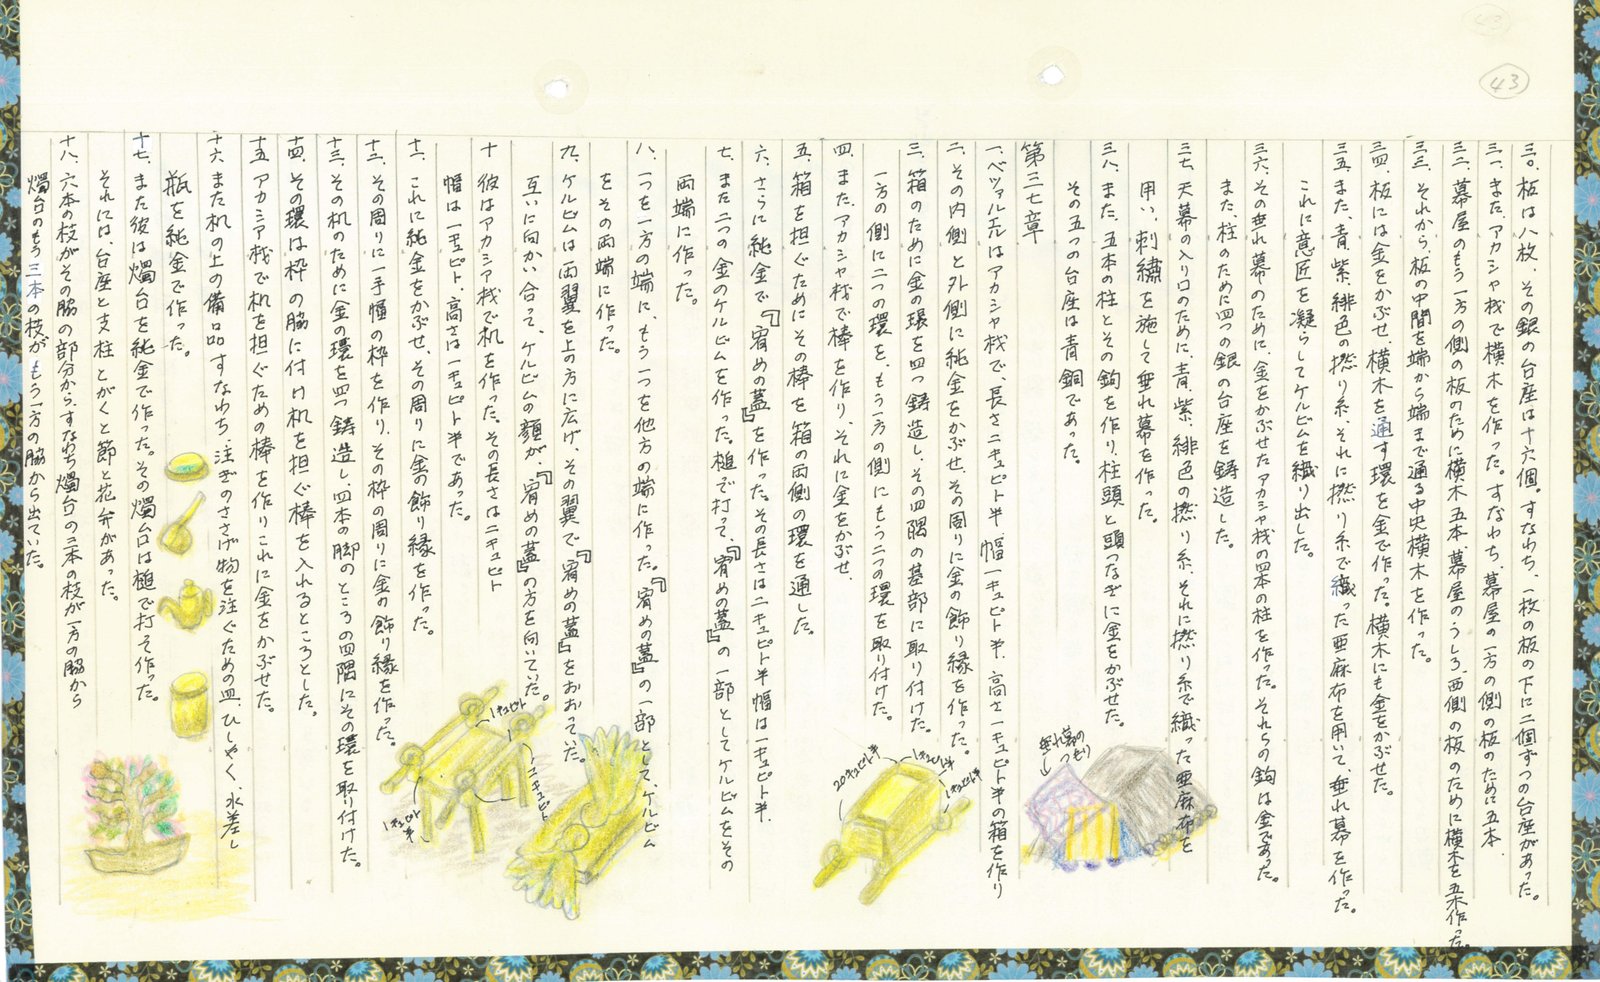 43
43
三〇、板は八枚、その銀の台座は十六個。すなわち、一枚の板の下に二個ずつの台座があった。
三一、また、アカシヤ材で横木を作った。すなわち、幕屋の一方の側の板のために五本、
三二、幕屋のもう一方の側の板のために横木五本、幕屋のうしろ、西側の板のために横木を五本作った。
三三、それから、板の中間を端から端まで通る中央横木を作った。
三四、板には金をかぶせ、横木を通す環を金で作った。横木にも金をかぶせた。
三五、また、青、紫、緋色の撚り糸、それに撚り糸で織った亜麻布を用いて、垂れ幕を作った。
これに意匠を凝らしてケルビムを織り出した。
三六、その垂れ幕のために、金をかぶせたアカシヤ材の四本の柱を作った。それらの鉤は金であった。
また、柱のために四つの銀の台座を鋳造した。
三七、天幕の入り口のために、青、紫、緋色の撚り糸、それに撚り糸で織った亜麻布を
用い、刺繍を施して垂れ幕を作った。
三八、また、五本の柱とその鉤を作り、柱頭と頭つなぎに金をかぶせた。
その五つの台座は青銅であった。
第三七章
一、ベツァルエルはアカシヤ材で、長さ二キュビト半、幅一キュビト半、高さ一キュビト半の箱を作り
二、その内側と外側に純金をかぶせ、その周りに金の飾り縁を作った。
三、箱のために金の環を四つ鋳造し、その四隅の基部に取り付けた。
一方の側に二つの環を、もう一方の側にもう二つの環を取り付けた。
四、また、アカシヤ材で棒を作り、それに金をかぶせ、
五、箱を担ぐためにその棒を箱の両側の環を通した。
六、さらに純金で『宥めの蓋』を作った。その長さは二キュビト半、幅は一キュビト半、
七、また二つの金のケルビムを作った。槌で打って、『宥めの蓋』の一部としてケルビムをその
両端に作った。
八、一つを一方の端に、もう一つを他方の端に作った。『宥めの蓋』の一部として、ケルビム
をその両端に作った。
九、ケルビムは両翼を上の方に広げ、その翼で『宥めの蓋』をおおった。
互いに向かい合って、ケルビムの顔が、『宥めの蓋』の方を向いていた。
十 彼はアカシア材で机を作った。その長さは二キュビト
幅は一キュビト、高さは一キュビト半であった。
十一、これに純金をかぶせ、その周りに金の飾り縁を作った。
十二、その周りに一手幅の枠を作り、その枠の周りに金の飾り縁を作った。
十三、その机のために金の環を四つ鋳造し、四本の脚のところの四隅にその環を取り付けた。
十四、その環は枠の脇に付け机を担ぐ棒を入れるところとした。
十五、アカシア材で机を担ぐための棒を作りこれに金をかぶせた。
十六、また机の上の備品 すなわち、注ぎのささげ物を注ぐための皿、ひしゃく、水差し
瓶を純金で作った。
十七、また彼は燭台を純金で作った。その燭台は槌で打そ作った。
それには、台座と支柱とがくと節と花弁があった。
十八、六本の枝がその脇の部分から、すなわち燭台の三本の枝が一方の脇から
燭台のもう三本の枝がもう一方の脇から出ていた。
垂れ幕の
つもり
20キュビト半
1キュビト半
1キュビト半
1キュビト
二キュビト
1キュビト
半